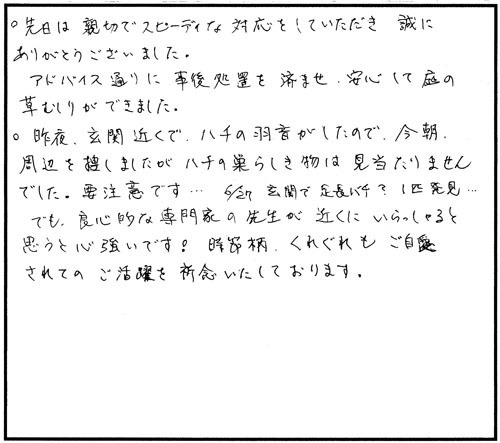 ○ 先日は 親切でスピーディな 対応をしていただき 誠に
ありがとうございました。
アドバイス通りに 事後処置を 済ませ、安心して庭の
草むしりができました。
○ 昨夜、玄関近くで、ハチの羽音がしたので、今朝、
周辺を捜しましたが ハチの巣らしき物は 見当たりません
でした。要注意です… 5/27 玄関で足長バチ? 1匹発見…
でも、良心的な専門家の先生が 近くに いらっしゃると
思うと心強いです! 時節柄、くれぐれも ご自愛
されての ご活躍を 祈念いたしております。